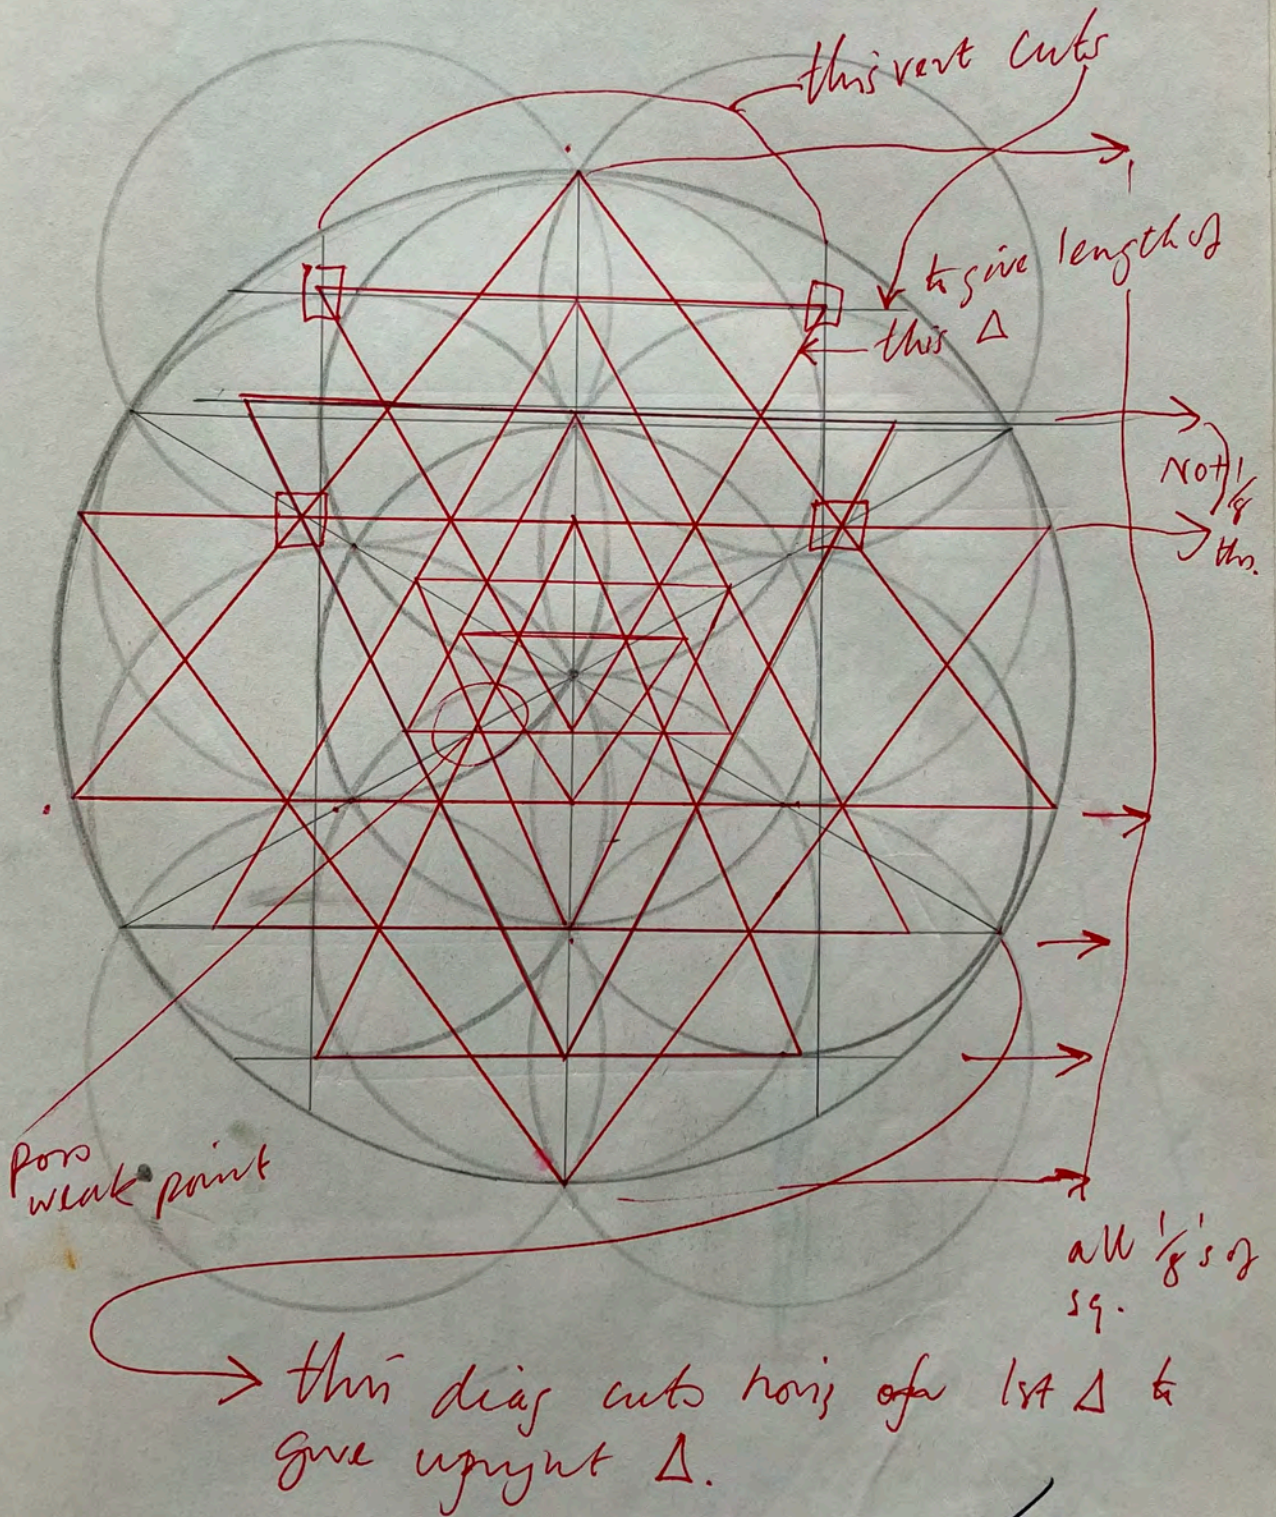 this vert cuts
to give length of
this Δ
Not 1/8
ths.
Poss
weak point
all 1/8's of
sq.
this diag cuts horiz of 1st Δ to
give upright Δ.